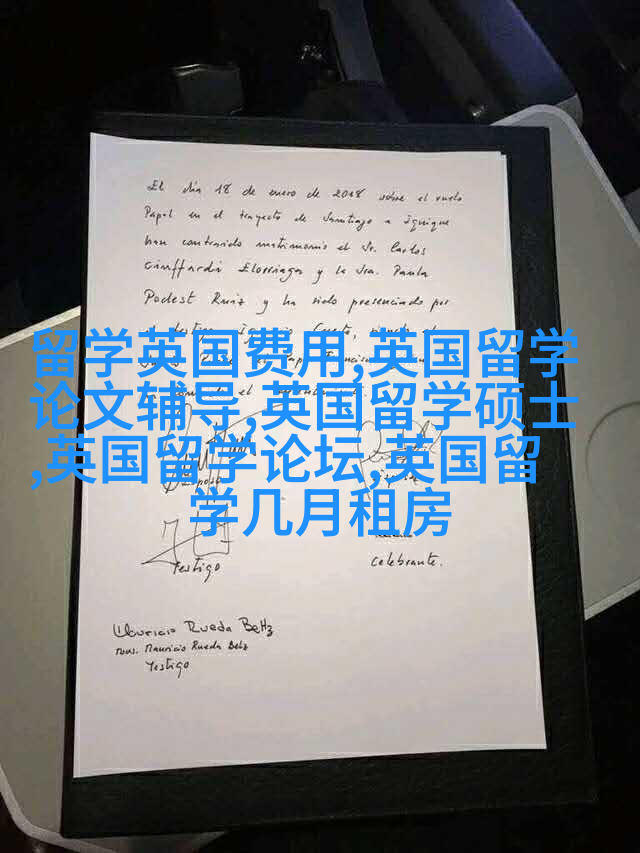 El día 18 de enero de 2018 sobre el vuelo
Papal en el trayecto de Santiago a Iquique
han contraido matrimonio el Sr. Carlos
Ciuffardi Elorriaga y la Sra. Paula
Podest Ruiz y ha sido presenciado por
留学英国费用,英国留学
论文辅导,英国留学硕士
,英国留学论坛,英国留
学几月租房
Esposo
Testigo
Celebrante.
Mauricio Rueda Beltz
Mons. Mauricio Rueda Beltz
Testigo